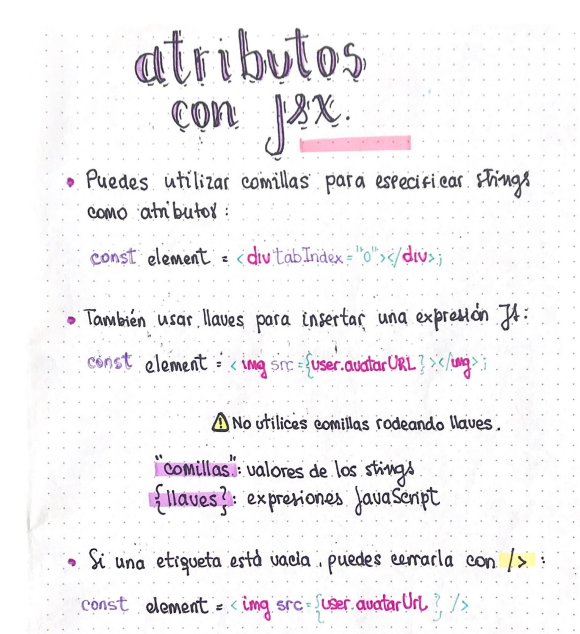 atributos
con jsx.
• Puedes utilizar comillas para especificar strings
como atributos:
const element = <div tabIndex="0"></div>;
• También usar llaves para insertar una expresión JS:
const element = <img src={user.avatarURL}></img>;
⚠ No utilices comillas rodeando llaves.
"comillas": valores de los strings
{llaves}: expresiones JavaScript
• Si una etiqueta está vacía, puedes cerrarla con />:
const element = <img src={user.avatarUrl} />